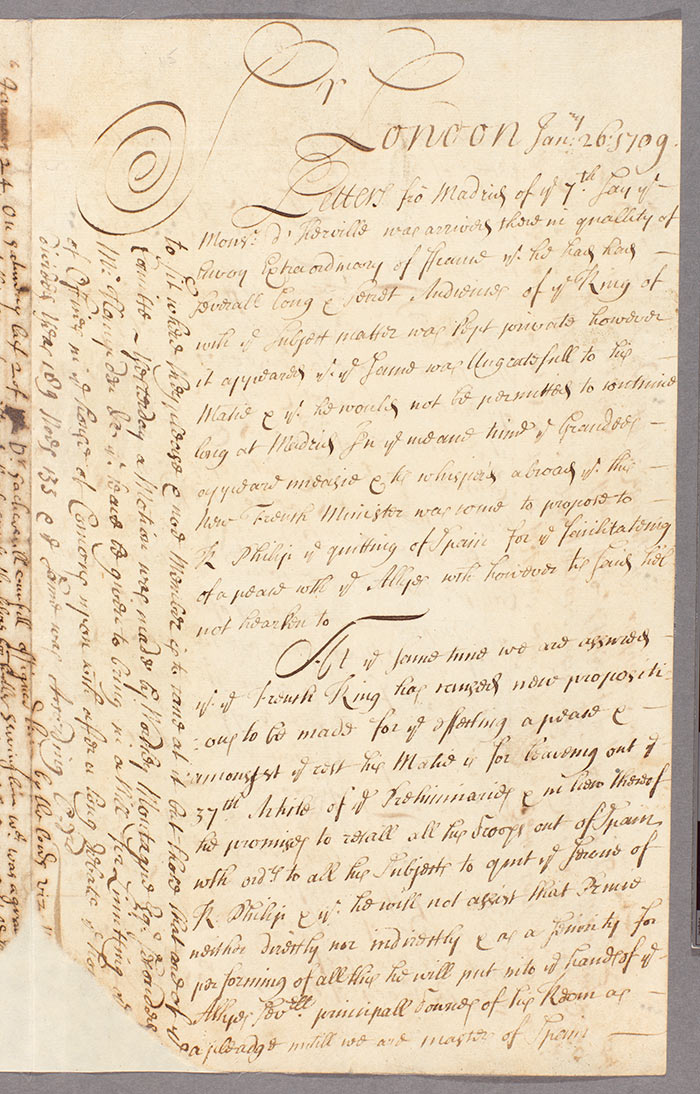 Sr
London Janry 26: 1709.
Letters frõ Madrid of ye 7th Say yt
Monsr: d'Iberville was arrived there in quallity of
Envoy Extraordinary of ffrance yt he had had
severall Long & Secret Audiences of ye King of
wch ye Subject matter was kept private however
it appeared yt ye Same was Ungratefull to his
Matie & yt he would not be permitted to continue
long at Madrid In ye meane time ye Grandees
appeare uneasie & tis whispered abroad yt this
new French Minister was come to propose to
K Philip ye quitting of Spain for ye facilitateing
of a peace wth ye Allyes wch however tis said hee
not hearken to
At ye same time we are assured
yt ye French King has caused new propositi
=ons to be made for ye effecting a peace &
amongst ye rest his Matie is for leaveing out ye
37th Article of ye Preliminaries & in liew thereof
he promises to recall all his Troops out of Spain
wth ordrs to all his Subjects to quit ye Service of
K Philip & yt he will not assist that Prince
neither directly nor indirectly & as a Security for
performing of all this he will put into ye hands of ye
Allyes Sevrll principall Townes of his Realm as
a pleadge untill we are master of Spain
to sit where they please & noe Member is to come at it but those that are of ye
Comittee Yesterday a Motion was made by Wortley Montague Esqr Seconded
Mr Hampden &c yt leave be given to bring in a Bill for Limiting
of Officers in ye house of Comons upon wch after a long debate ye
divided Yeas 189 Noes 133 & ye same was Ordered
January 24 On Saturday last